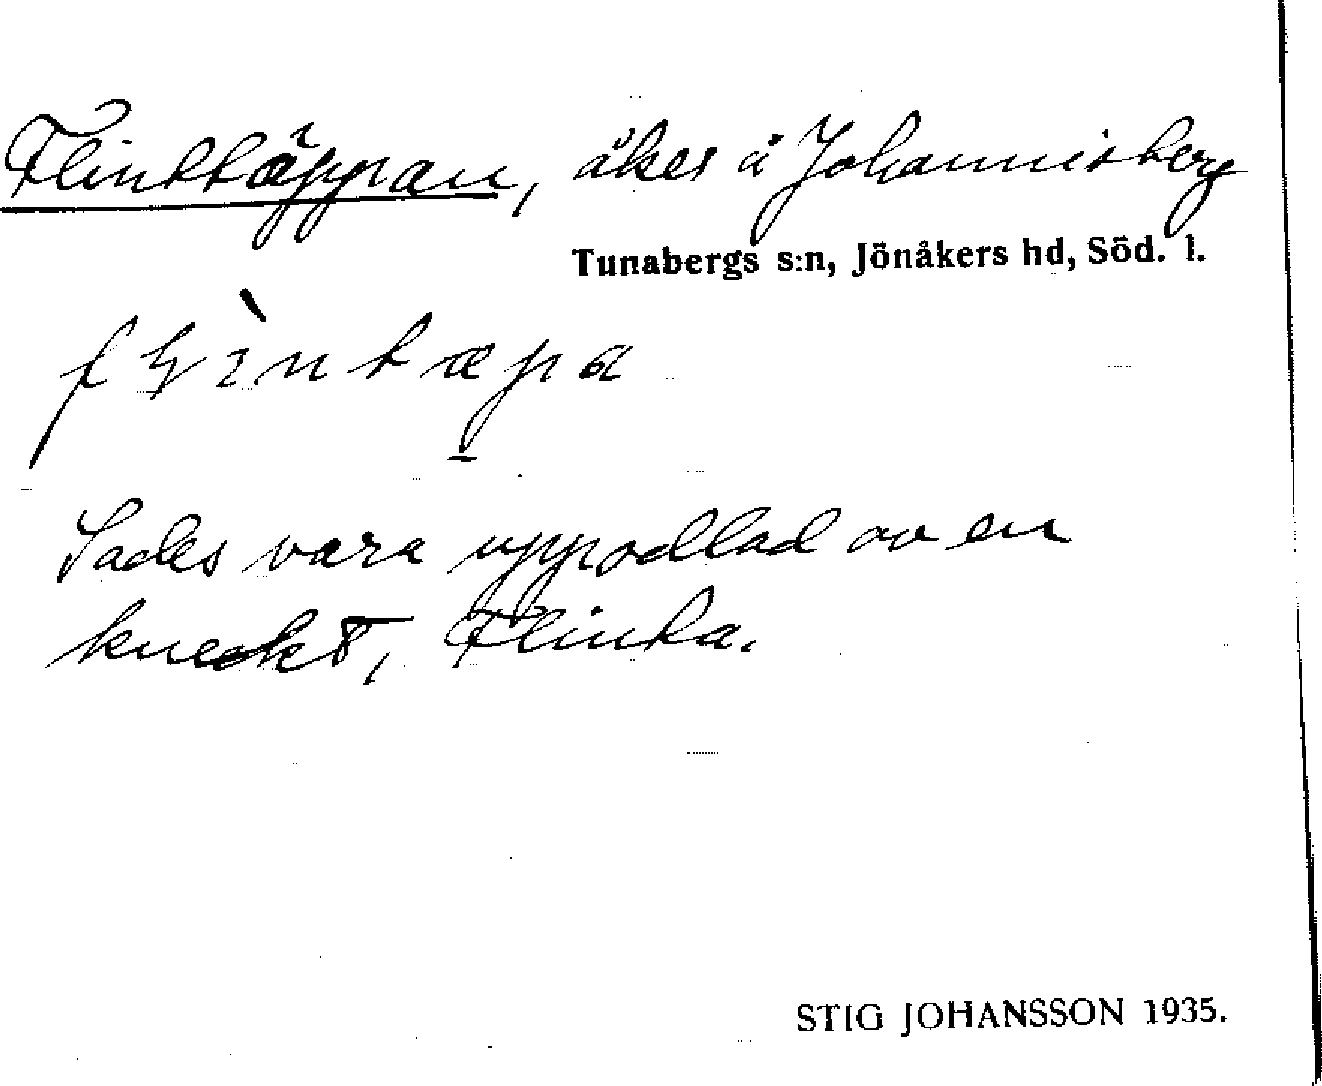 Flinttäppan, åker å Johannisberg
Tunabergs s:n, Jönåkers hd, Söd. l.
Sades vara uppodlad av en
knekt, Flinta.
STIG JOHANSSON 1935.